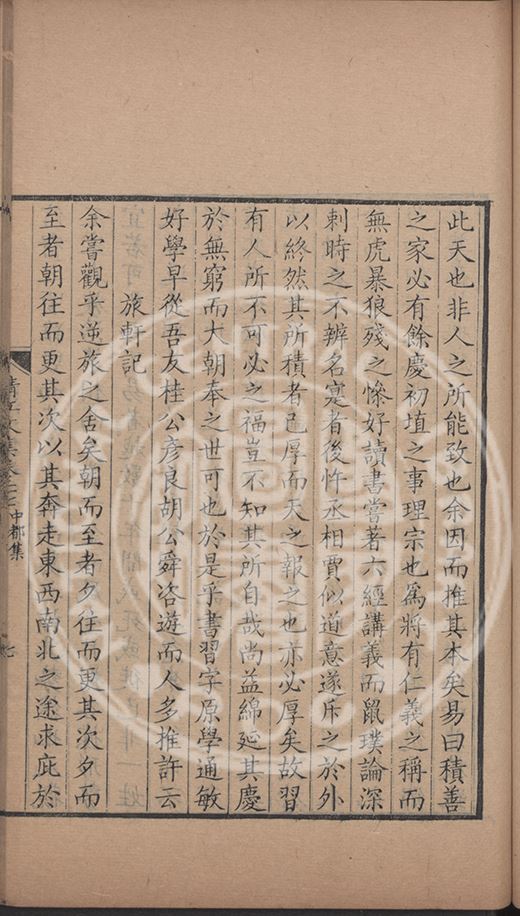 此天也非人之所能致也余因而推其本矣易曰積善
之家必有餘慶初埴之事理宗也爲將有仁義之稱而
無虎暴狼殘之慘好讀書嘗著六經講義而鼠璞論深
刺時之不辨名寔者後忤丞相賈似道意遂斥之於外
以終然其所積者已厚而天之報之也亦必厚矣故習
有人所不可必之福豈不知其所自哉尚益綿延其慶
於無窮而大朝奉之世可也於是乎書習字原學通敏
好學早從吾友桂公彥良胡公舜咨遊而人多推許云
旅軒記
余嘗觀乎逆旅之舍矣朝而至者夕往而更其次夕而
至者朝往而更其次以其奔走東西南北之途求庇於
中都集
七